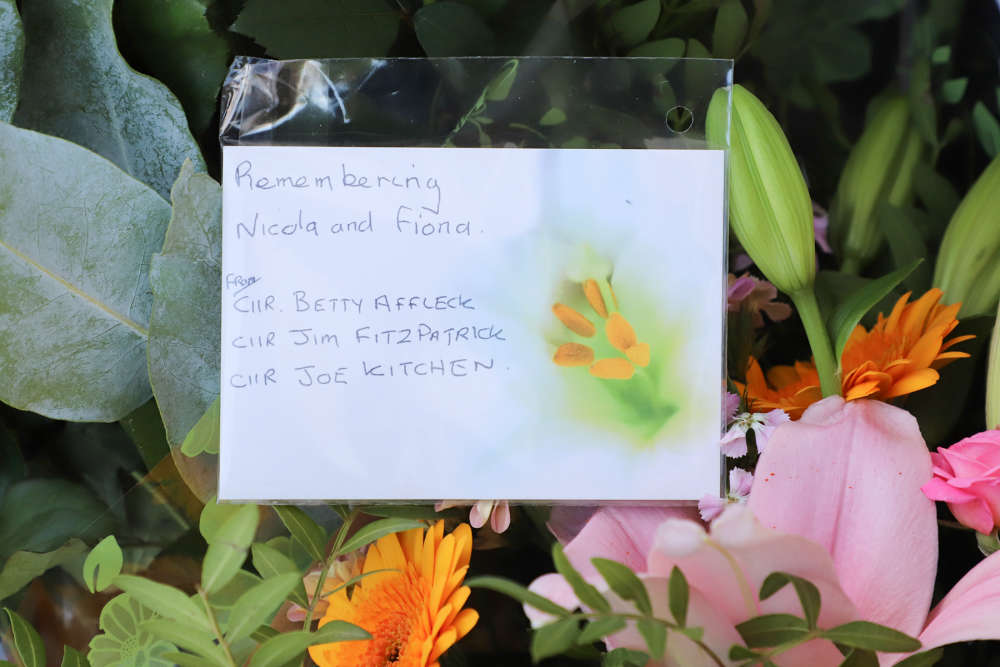 Remembering
Nicola and Fiona.
From
CllR. BETTY AFFLECK
CllR JIM FITZPATRICK
CllR JOE KITCHEN.